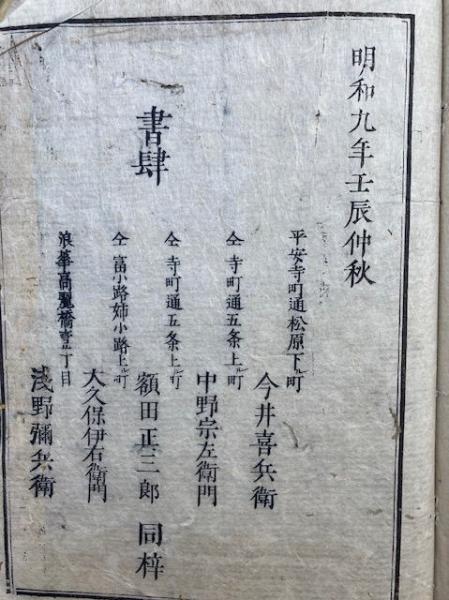 明和九年壬辰仲秋
書肆
平安寺町通松原下ル町
今井喜兵衛
仝寺町通五条上ル町
中野宗左衛門
仝寺町通五条上ル町
額田正三郎
仝富小路姉小路上ル町
大久保伊右衛門
浪華高麗橋壱丁目
浅野彌兵衛
同梓